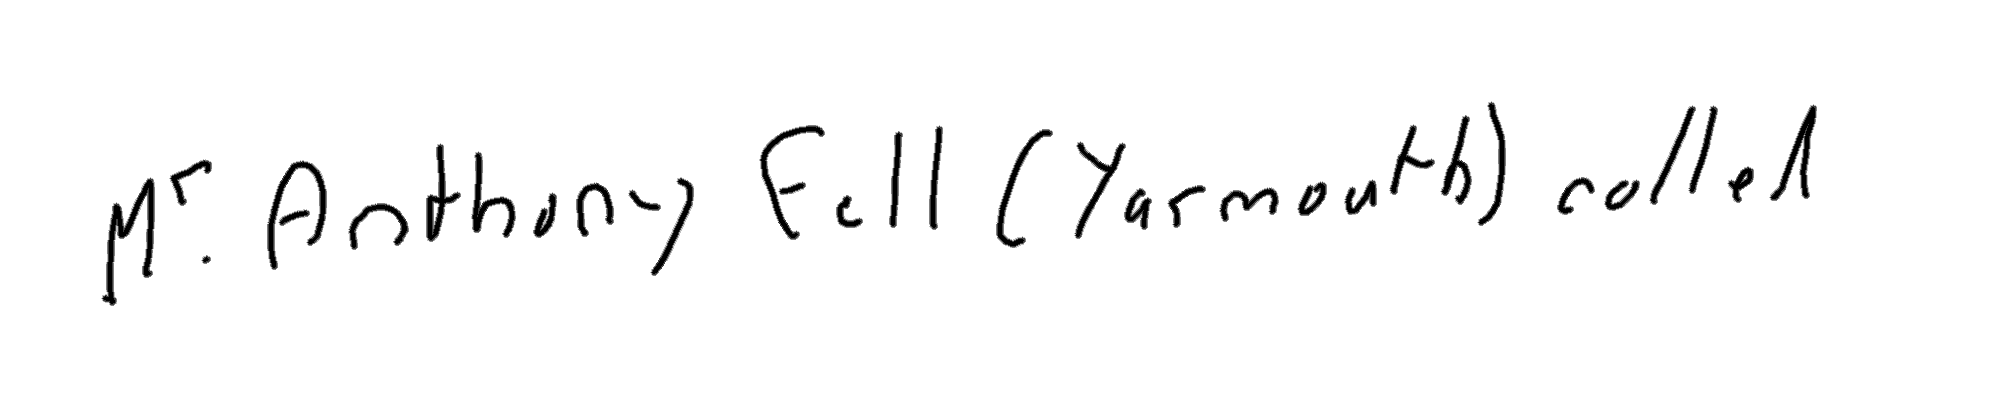 Mr. Anthony Fell (Yarmouth) called